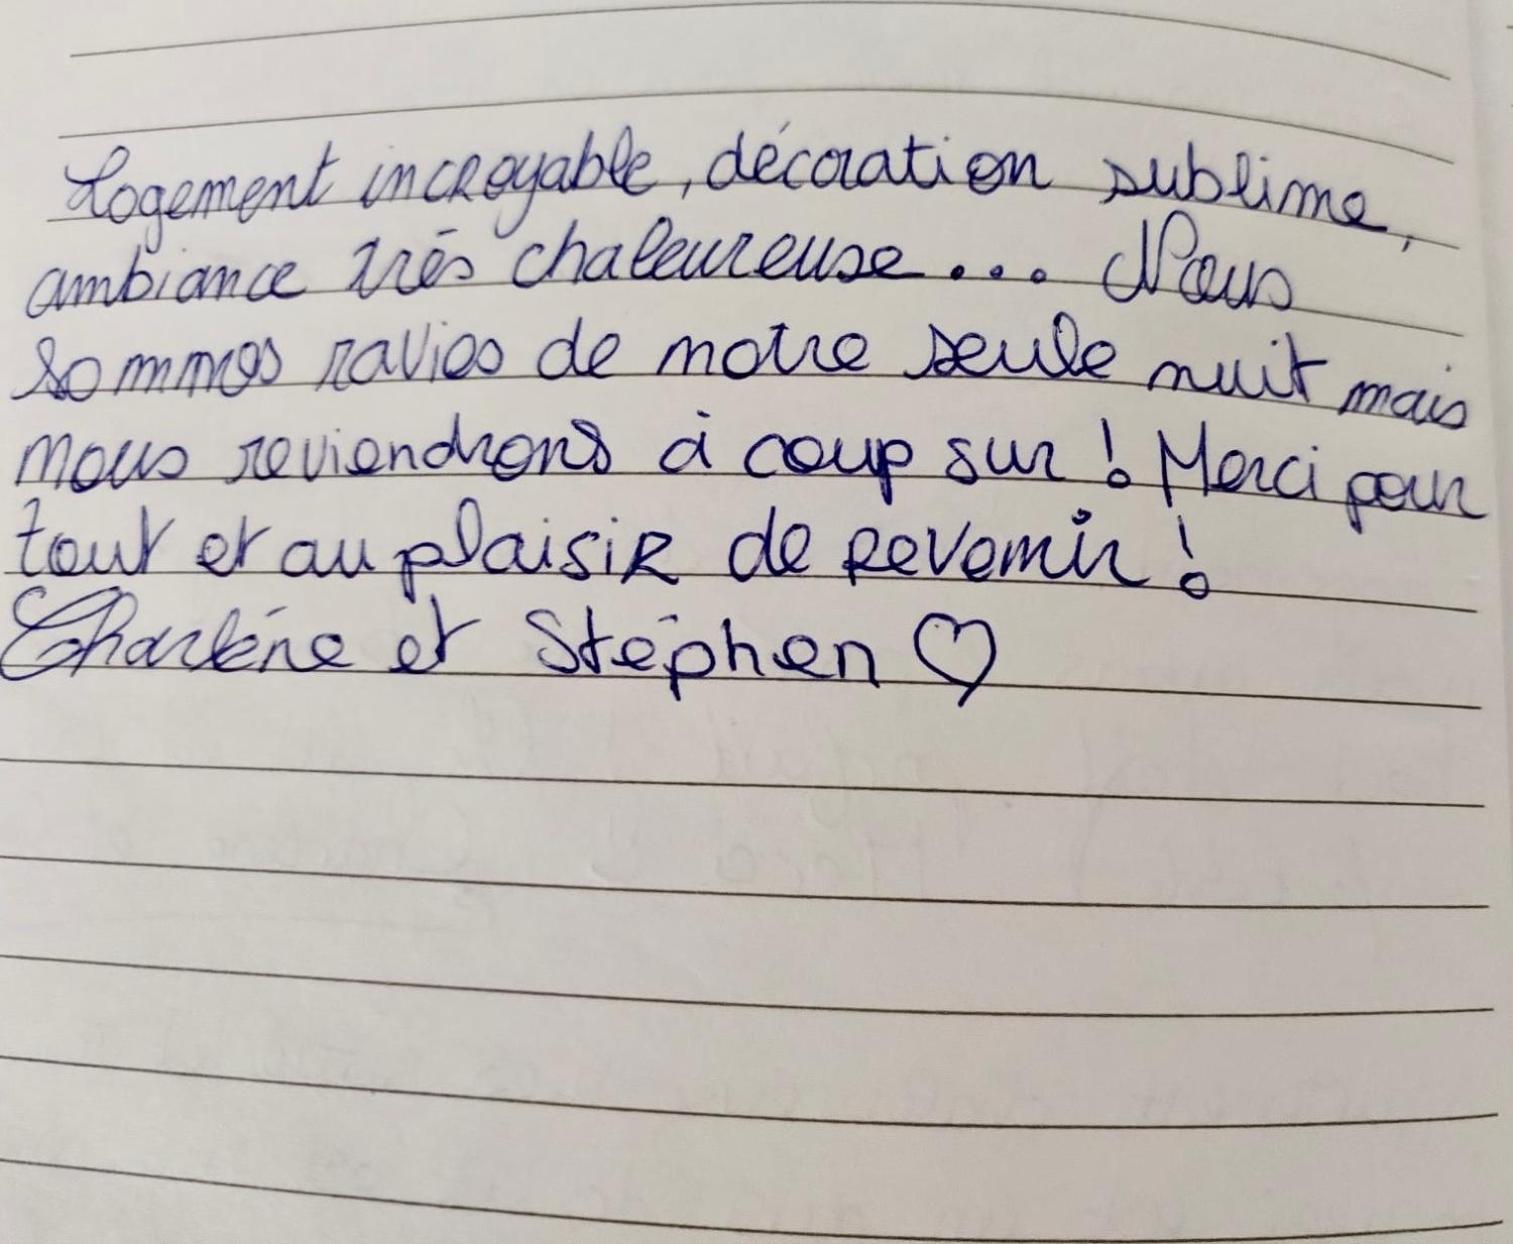 Logement incroyable, décoration sublime,
ambiance très chaleureuse... Nous
sommes ravies de notre seule nuit mais
nous reviendrons à coup sur ! Merci pour
tout et au plaisir de revenir !
Charlène et Stéphen ♡